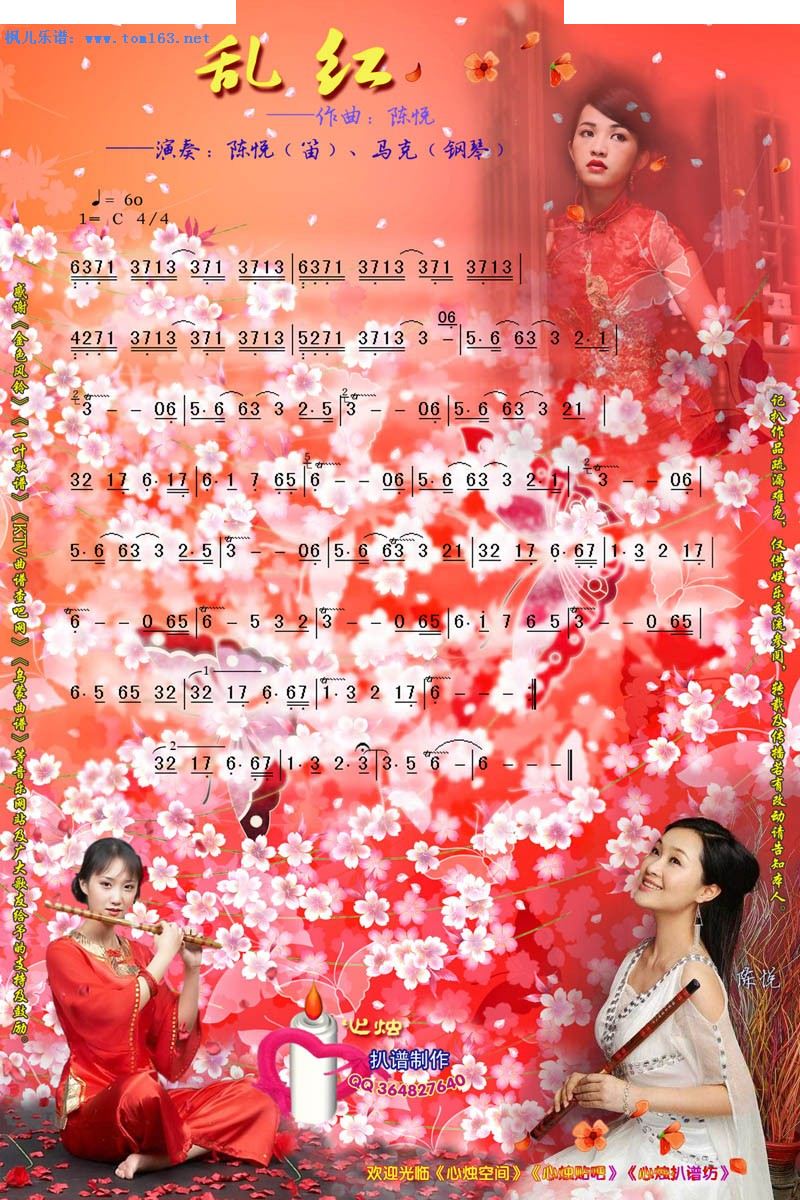 枫儿乐谱：www.tom163.net
乱红
——作曲：陈悦
——演奏：陈悦（笛）、马克（钢琴）
♩= 60
1= C 4/4
6371 3713 371 3713|6371 3713 371 3713|
06
4271 3713 371 3713|5271 3713 3 -|5·6 63 3 2·1|
3 - - 06|5·6 63 3 2·5|3 - - 06|5·6 63 3 21|
32 17 6·17|6·1 7 65|6 - - 06|5·6 63 3 2·1|3 - - 06|
5·6 63 3 2·5|3 - - 06|5·6 63 3 21|32 17 6·67|1·3 2 17|
6 - - 0 65|6 - 5 32|3 - - 065|6·1 7 65|3 - - 0 65|
1
6·5 65 32|32 17 6·67|1·3 2 17|6 - - - :‖
2
32 17 6·67|1·3 2·3|3·5 6 -|6 - - -‖
感谢《金色风铃》《一叶歌谱》《KTV曲谱查吧网》《乌蒙曲谱》等音乐网站及广大歌友给予的支持及鼓励。
记扒作品疏漏难免，仅供娱乐交流参阅，转载及传播若有改动请告知本人。
陈悦
心烛
扒谱制作
QQ 364827640
欢迎光临《心烛空间》《心烛贴吧》《心烛扒谱坊》